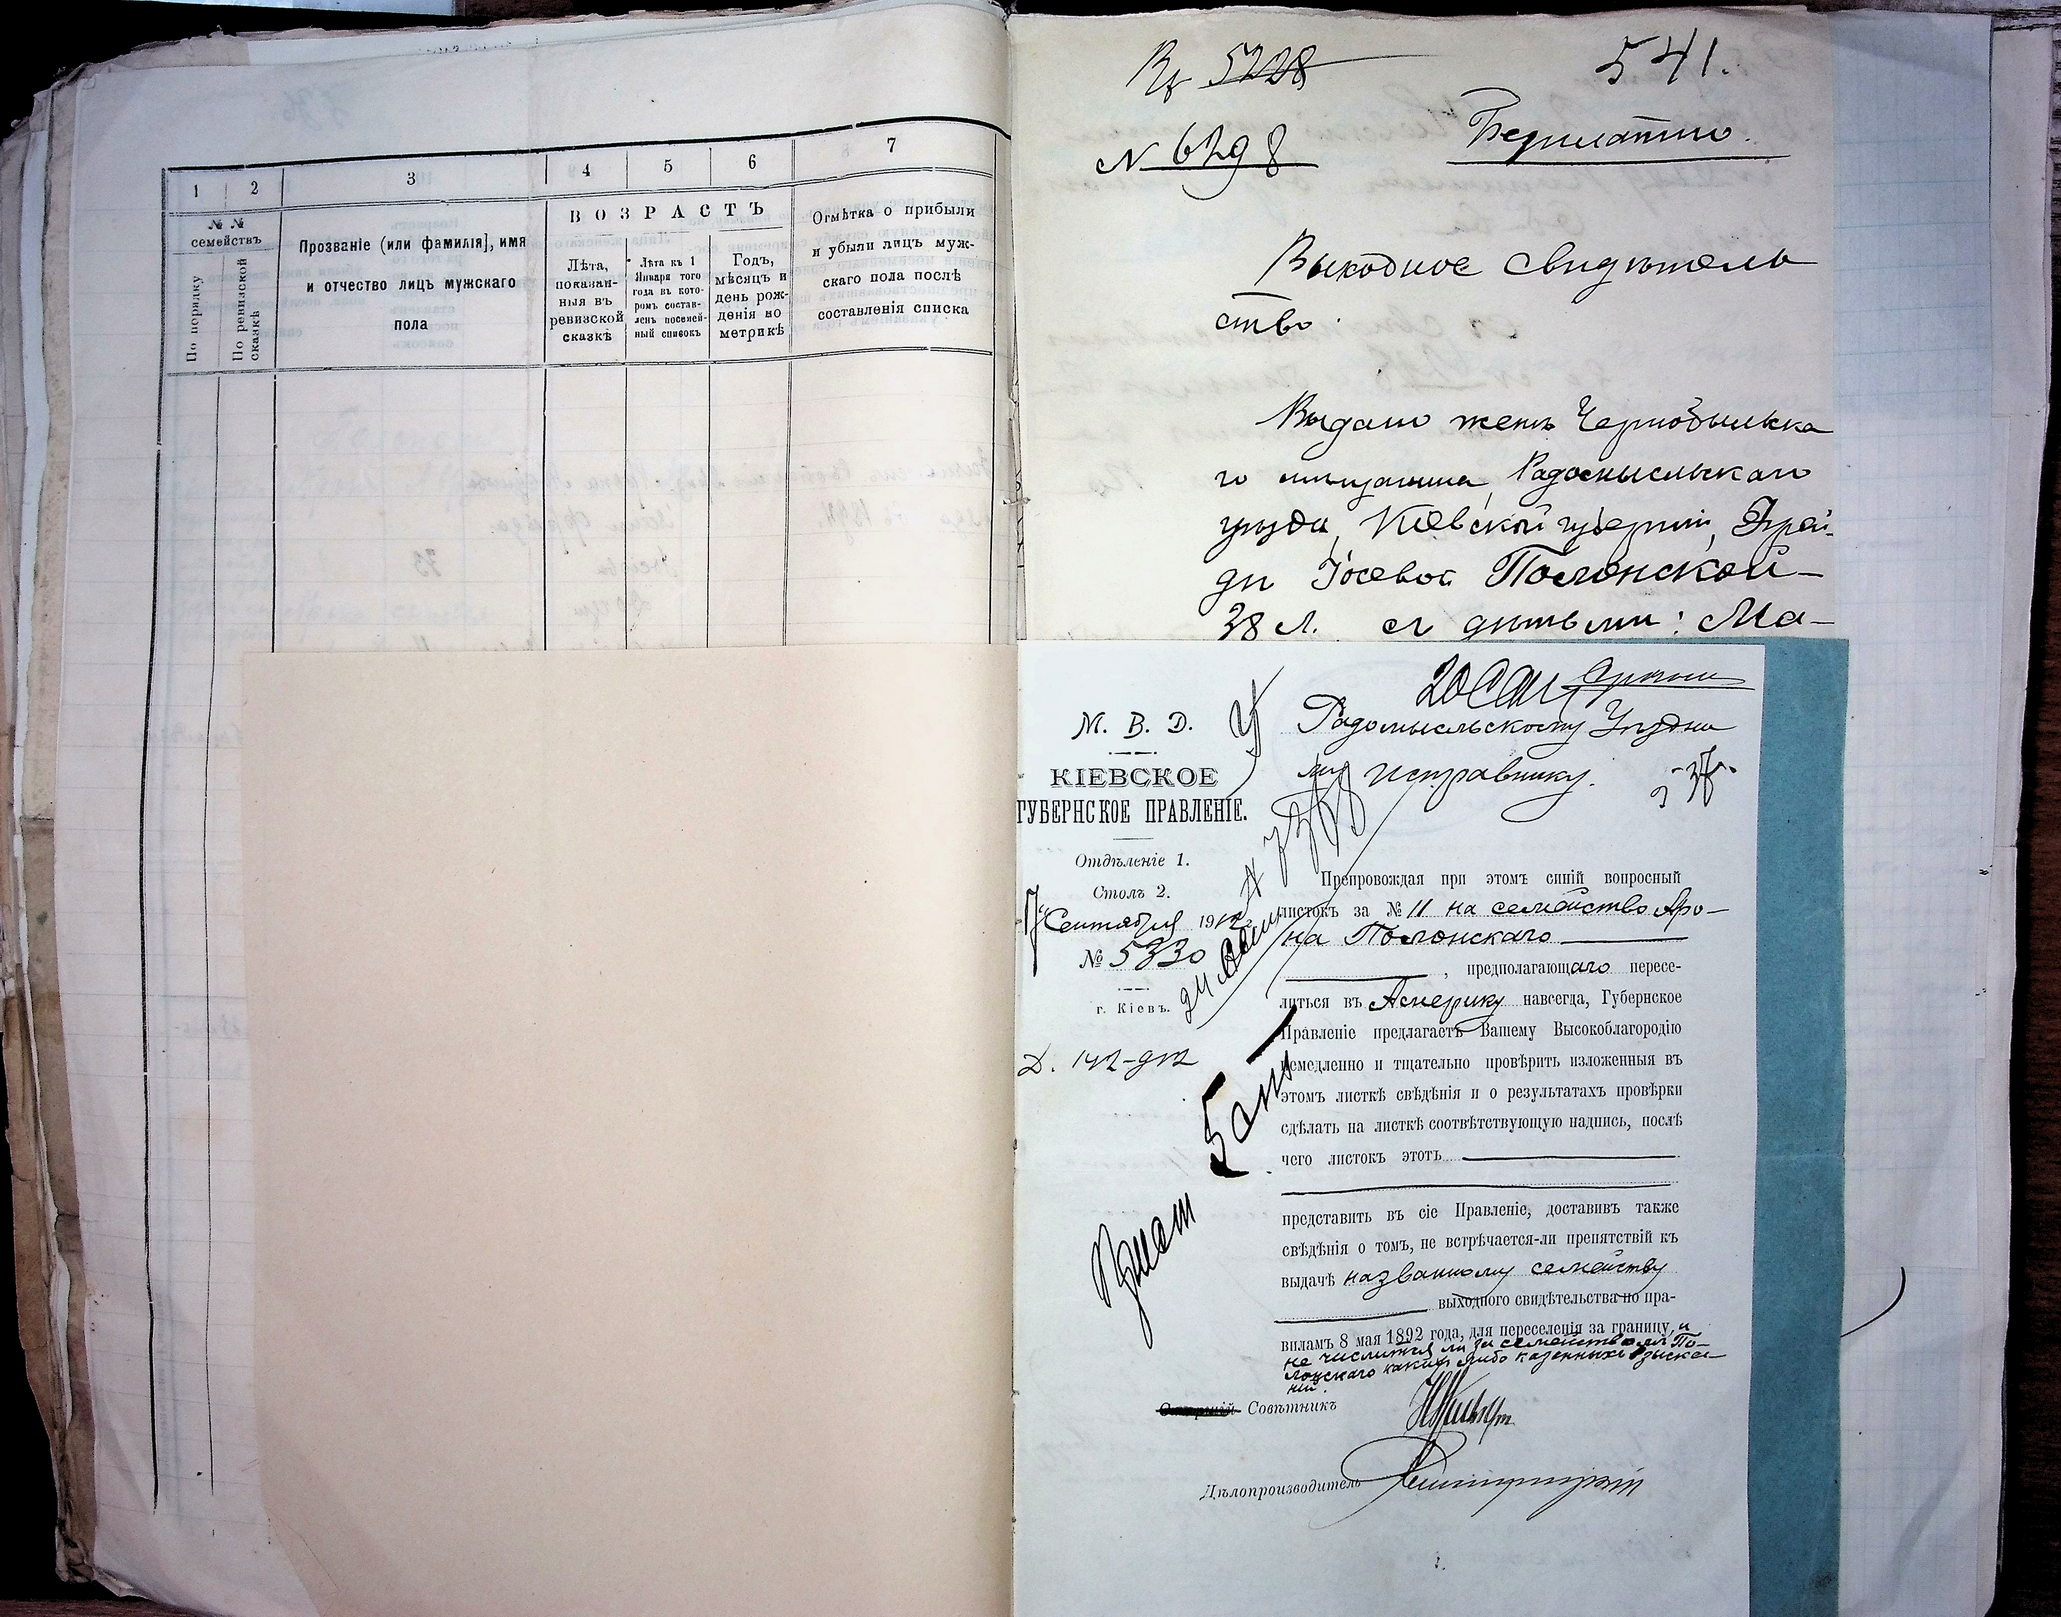 1
2
3
4
5
6
7
№ №
семействъ
По порядку
По ревизской
сказкѣ
Прозваніе (или фамилія], имя
и отчество лицъ мужскаго
пола
ВОЗРАСТЪ
Лѣта,
показан-
ныя въ
ревизской
сказкѣ
Лѣта къ 1
Января того
года въ кото-
ромъ состав-
ленъ посемей-
ный списокъ
Годъ,
мѣсяцъ и
день рож-
денія по
метрикѣ
Отмѣтка о прибыли
и убыли лицъ муж-
скаго пола послѣ
составленія списка
5228
541.
N 6298
Безплатно.
Выходное свидѣтель
ство.
Выдано женѣ Чернобыльска
го мѣщанина, Радомысльскаго
уѣзда, Кіевской губерніи, Фрей-
ди Іосевой Полонской-
38 л. съ дѣтьми: Ма-
М. В. Д.
КІЕВСКОЕ
ГУБЕРНСКОЕ ПРАВЛЕНІЕ.
Отдѣленіе 1.
Столъ 2.
17 Сентября 1912
№ 5330
г. Кіевъ.
Д. 142-912
Радомысльскому Уѣздно
му Исправнику.
537
Препровождая при этомъ синій вопросный
листокъ за № 11 на семейство Аро-
на Полонскаго
, предполагающаго пересе-
литься въ Америку навсегда, Губернское
Правленіе предлагаетъ Вашему Высокоблагородію
немедленно и тщательно провѣрить изложенныя въ
этомъ листкѣ свѣдѣнія и о результатахъ провѣрки
сдѣлать на листкѣ соотвѣтствующую надпись, послѣ
чего листокъ этотъ
представить въ сіе Правленіе, доставивъ также
свѣдѣнія о томъ, не встрѣчается-ли препятствій къ
выдачѣ названному семейству
выходного свидѣтельства по пра-
виламъ 8 мая 1892 года, для переселенія за границу, и
не числится ли за семействомъ По-
лонскаго какихъ либо казенныхъ взыска-
ній.
Старшій Совѣтникъ
Дѣлопроизводитель